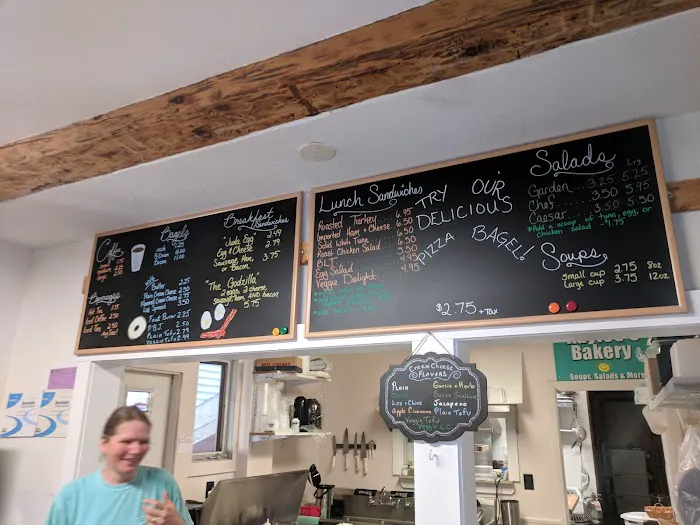 Coffee
small 1.75
Bagels
each
½ Dozen
Dozen
w/
Butter 2.25
Plain Cream Cheese
Flavored Cream Cheese 2.75
Lox Spread
Peanut Butter 2.25
PB&J 2.50
Plain Tofu 2.79
Veggie Tofu 2.99
Beverages
Hot Tea
Iced Coffee
Iced Tea
Breakfast
Sandwiches
"Just Egg" 2.49
Egg & Cheese 2.79
Sausage, Ham, 3.75
or Bacon
"The Godzilla"
2 eggs, 2 cheese,
Sausage, ham, AND bacon
5.75
Lunch Sandwiches
Roasted Turkey 6.95
Imported Ham & Cheese 6.50
Solid White Tuna 6.50
Roast Chicken Salad 6.50
BLT 6.50
Egg Salad 4.95
Veggie Delight 4.95
TRY OUR
DELICIOUS
PIZZA BAGEL!
$2.75 + tax
Salads
Lrg
Garden 3.25 5.25
Chef 3.50 5.95
Caesar 3.50 5.50
*Add a scoop of tuna, egg, or
chicken salad
Soups
small cup 2.75 8oz
Large cup 3.75 12oz
Cream Cheese
Flavors
Plain
Lox + Chive
Apple Cinnamon
Garlic + Herb
Bacon Scallion
Jalapeno
Plain Tofu
Veggie Tofu
Veggie CC
Bakery
Soups, Salads & More